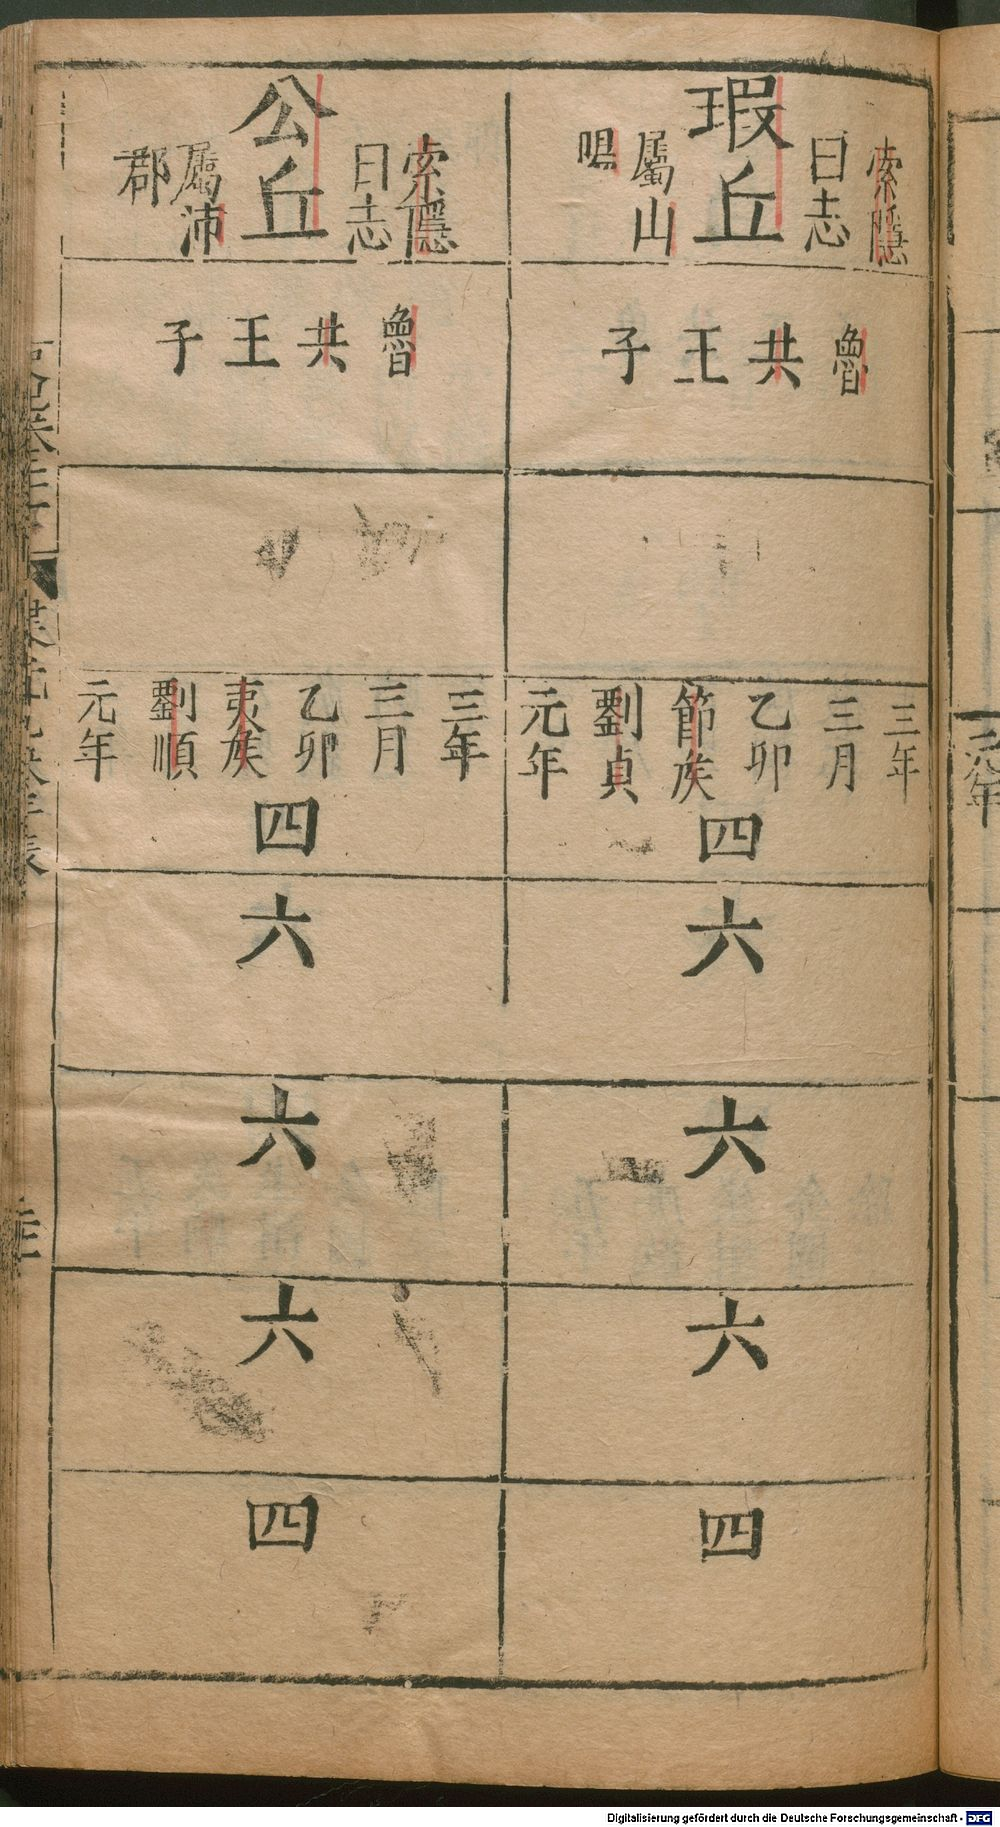 瑕丘
索隱
曰志
屬山
魯共王子
三年
三月
乙卯
節矦
劉貞
元年
四
六
六
六
四
公丘
索隱
曰志
屬沛
郡
魯共王子
三年
三月
乙卯
夷矦
劉順
元年
四
六
六
六
四
元年
Digitalisierung gefördert durch die Deutsche Forschungsgemeinschaft - DFG